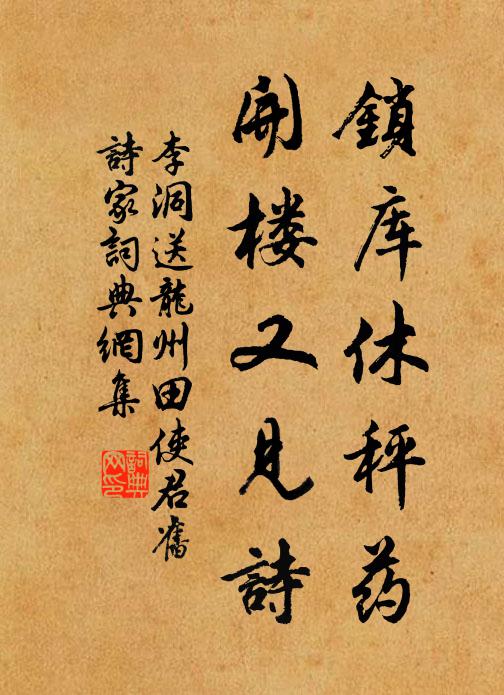 鎖库休秤药
開楼又見詩
李洞送龍州田使君舊
詩家詞典網集
詞典网印